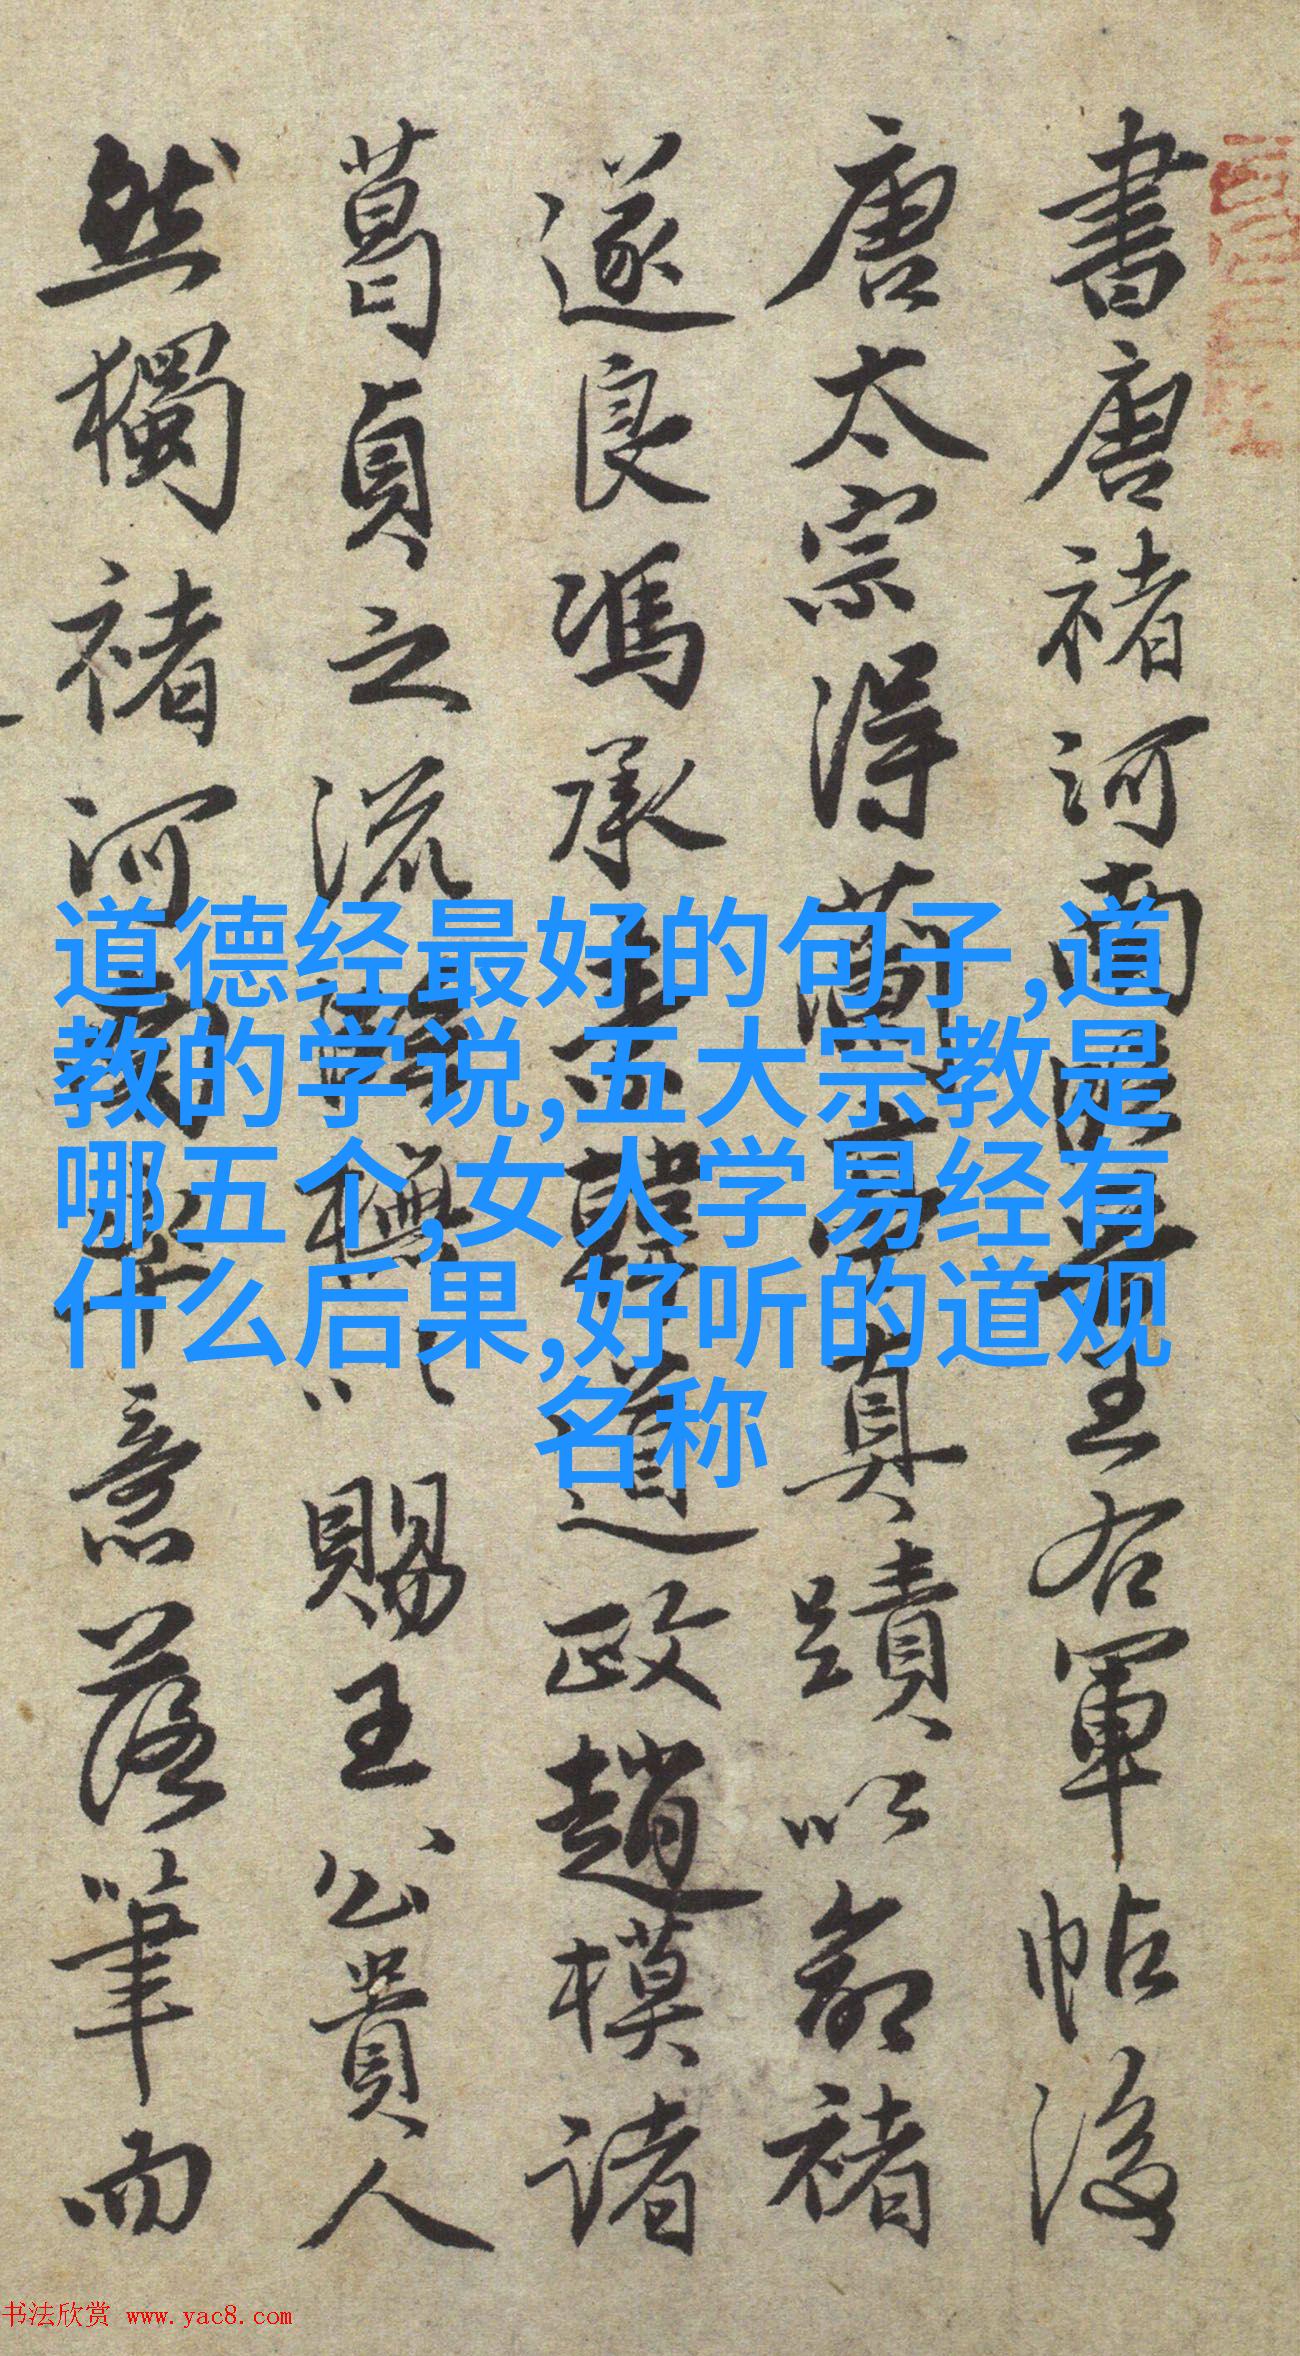 書唐褚河南臨王右軍帖後
唐太宗得蘭亭真蹟以命褚
遂良馮承素韓道政趙模諸
葛貞之流模以賜王公貴人
然獨褚河南意落筆而
道德经最好的句子,道
教的学说,五大宗教是
哪五个,女人学易经有
什么后果,好听的道观
名称
书法欣赏 www.yac8.com